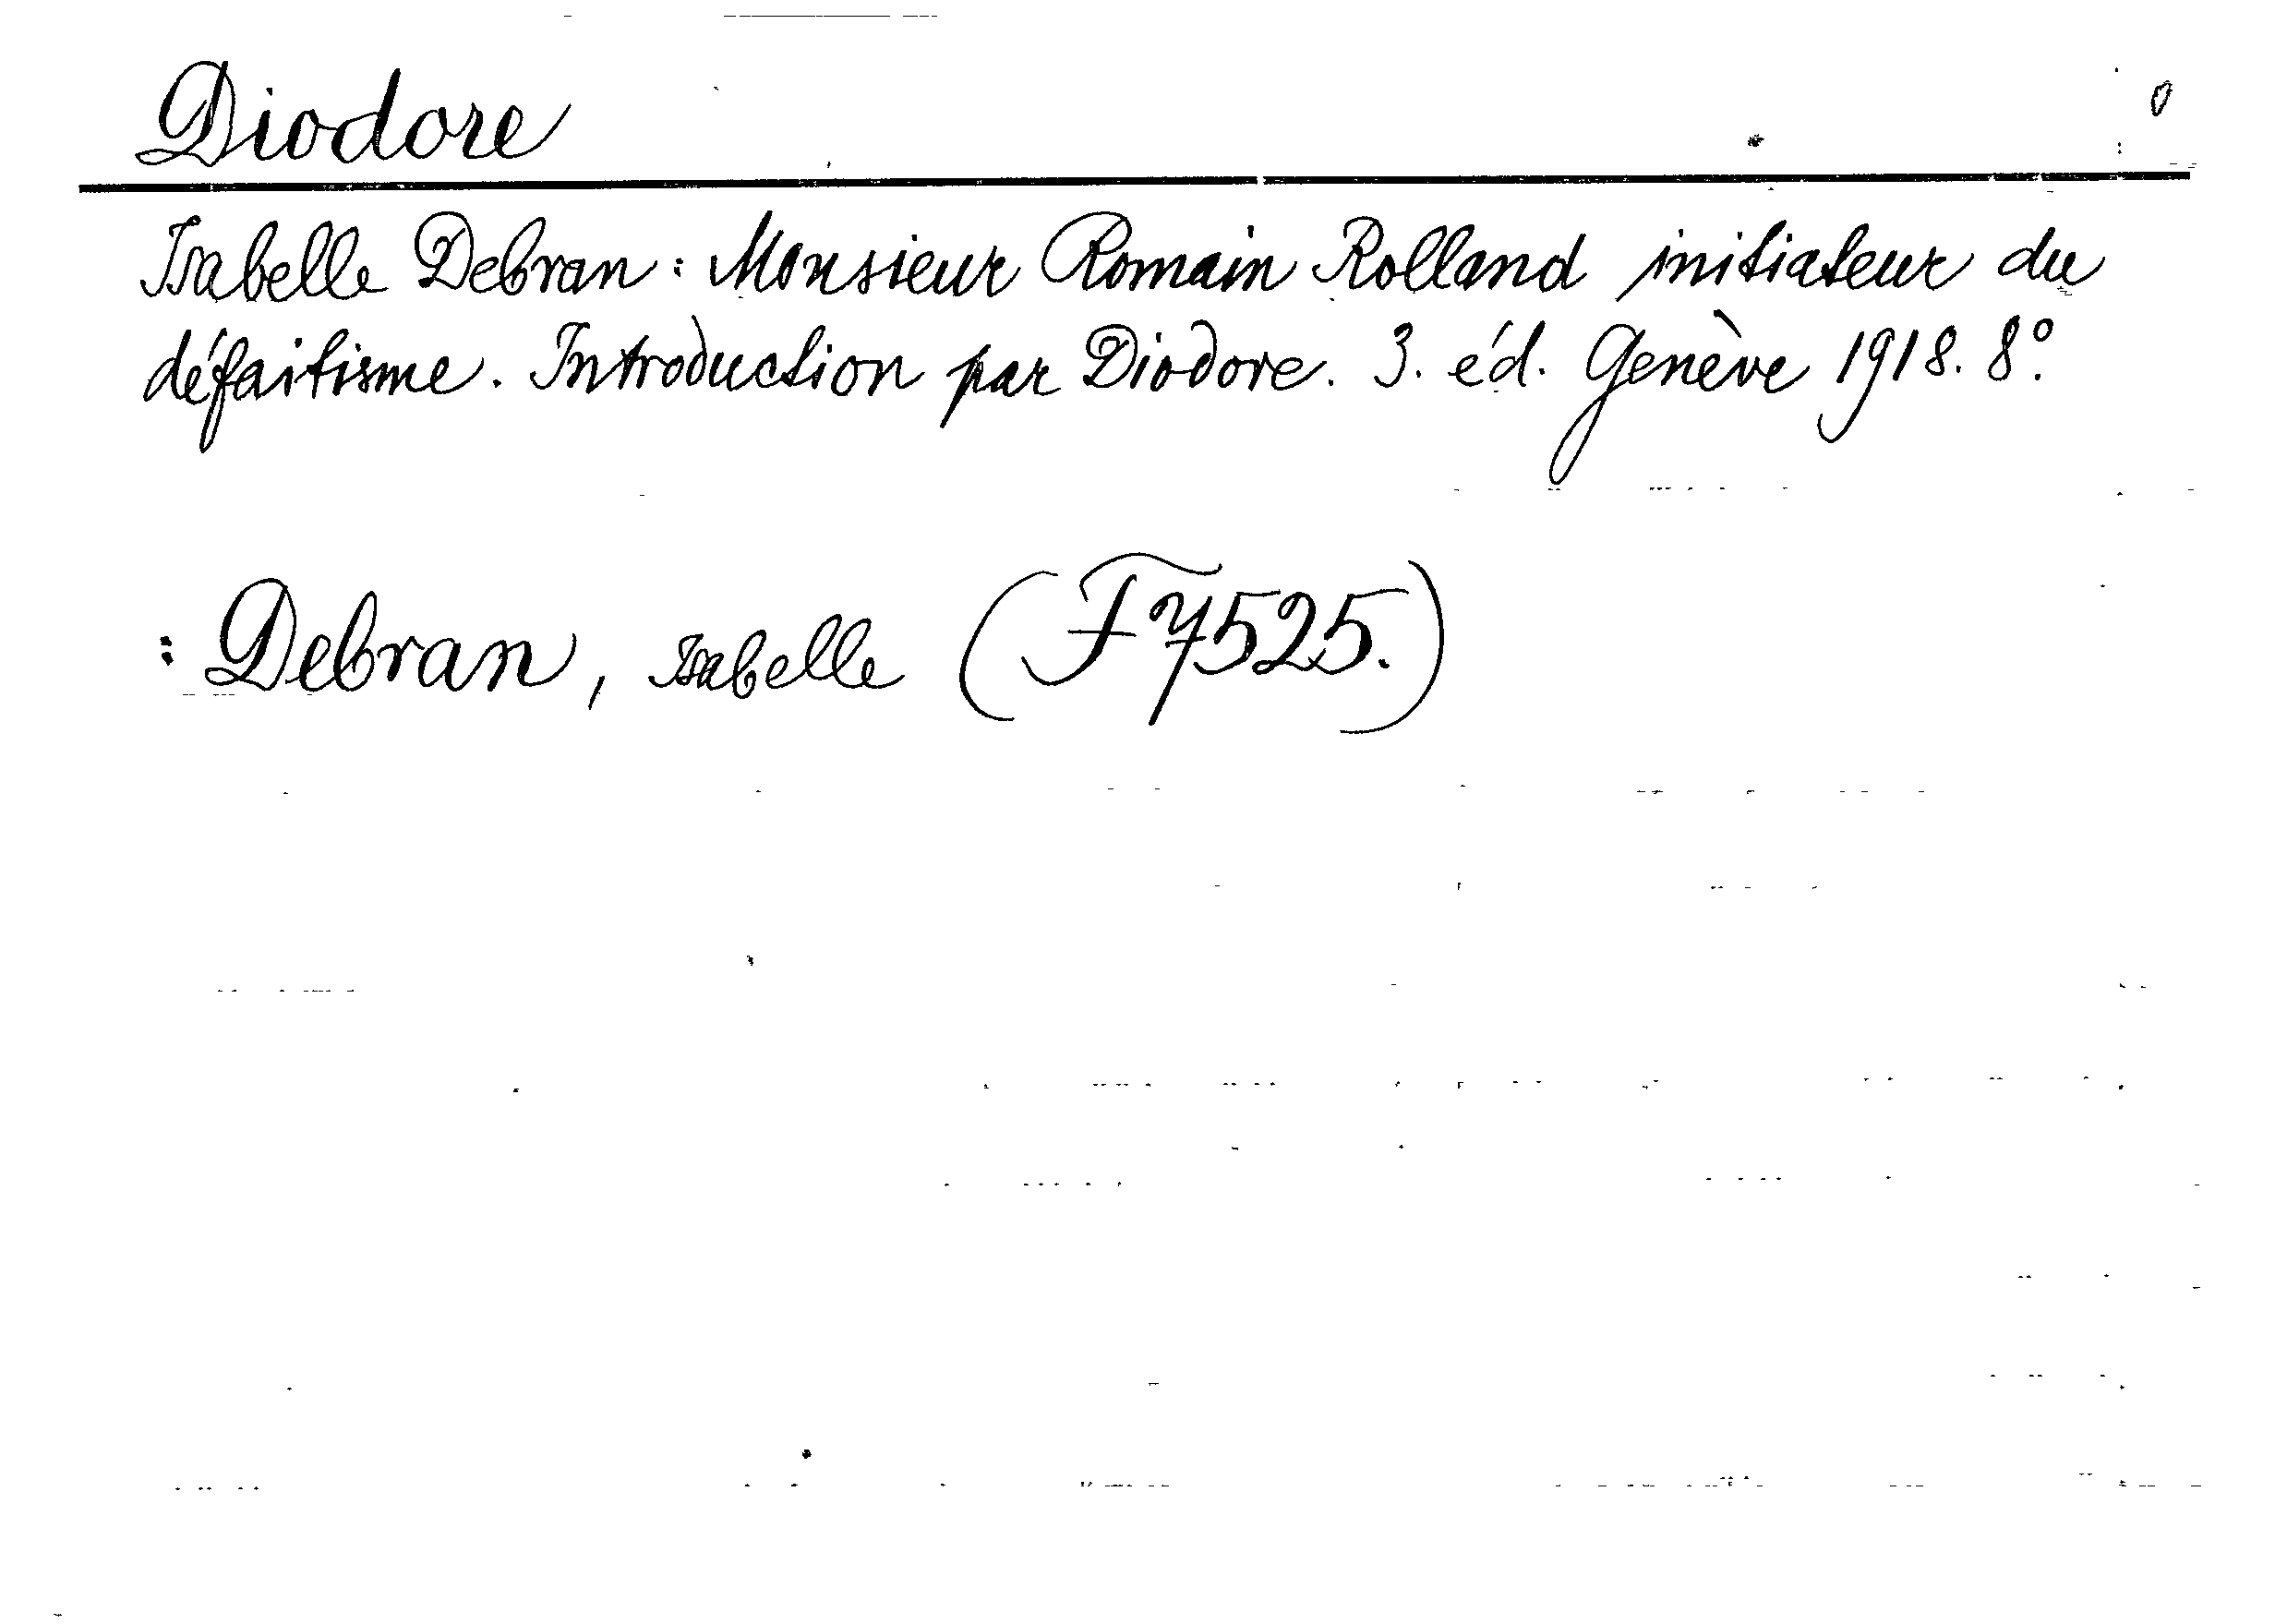 Diodore
Isabelle Debran: Monsieur Romain Rolland initiateur du
défaitisme. Introduction par Diodore. 3. éd. Genève 1918. 8°.
: Debran, Isabelle (F7525.)